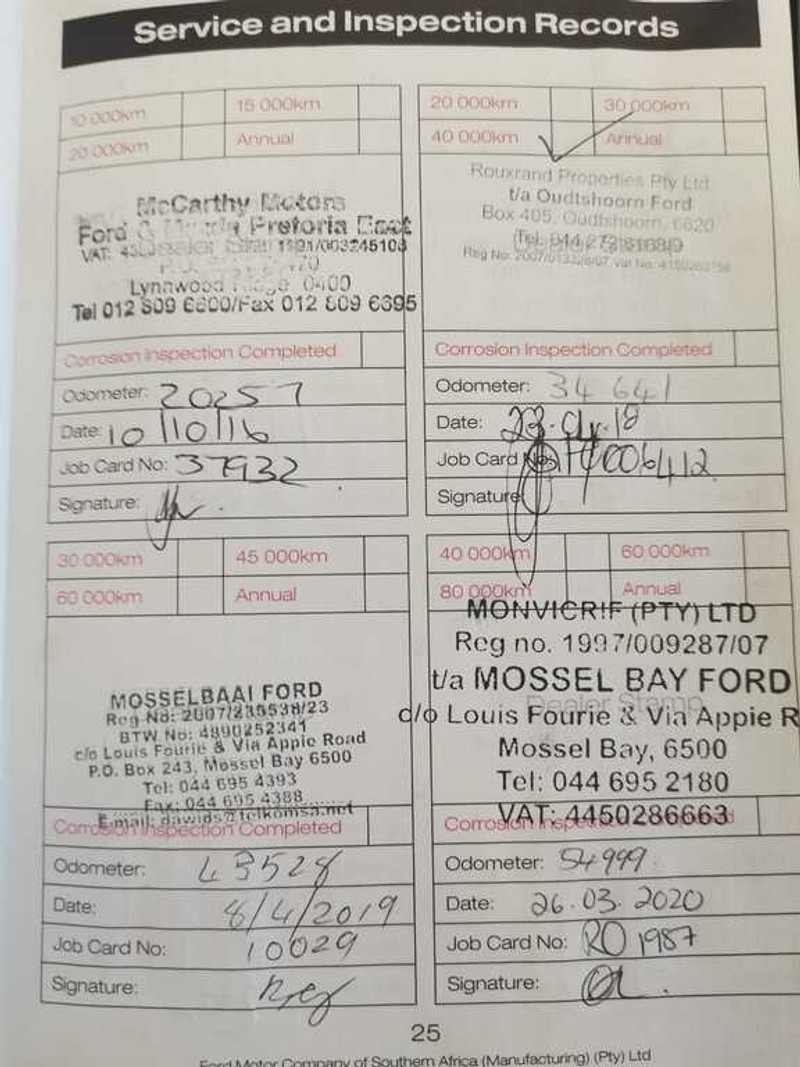 Service and Inspection Records
10 000km 15 000km
20 000km Annual
McCarthy Motors
Ford Pretoria East
VAT: 1991/003245108
Lynnwood 0400
Tel 012 809 6600/Fax 012 809 6695
Corrosion Inspection Completed
Odometer: 20257
Date: 10/10/16
Job Card No: 37932
Signature:
20 000km 30 000km
40 000km Annual
Rouxrand Properties Pty Ltd
t/a Oudtshoorn Ford
Box 405, Oudtshoorn, 6620
Tel:
Reg No:
Corrosion Inspection Completed
Odometer: 34 641
Date:
Job Card No:
Signature:
30 000km 45 000km
60 000km Annual
MOSSELBAAI FORD
Reg No: 2007/235538/23
BTW No: 4890252341
c/o Louis Fourie & Via Appie Road
P.O. Box 243, Mossel Bay 6500
Tel: 044 695 4393
Fax: 044 695 4388
E-mail: dawids@telkomsa.net
Corrosion Inspection Completed
Odometer: 43528
Date: 8/4/2019
Job Card No: 10029
Signature:
40 000km 60 000km
80 000km Annual
MONVICRIF (PTY) LTD
Reg no. 1997/009287/07
t/a MOSSEL BAY FORD
Dealer Stamp
c/o Louis Fourie & Via Appie R
Mossel Bay, 6500
Tel: 044 695 2180
VAT: 4450286663
Corrosion Inspection Completed
Odometer: 54999
Date: 26.03.2020
Job Card No: RO 1987
Signature:
25
Ford Motor Company of Southern Africa (Manufacturing) (Pty) Ltd